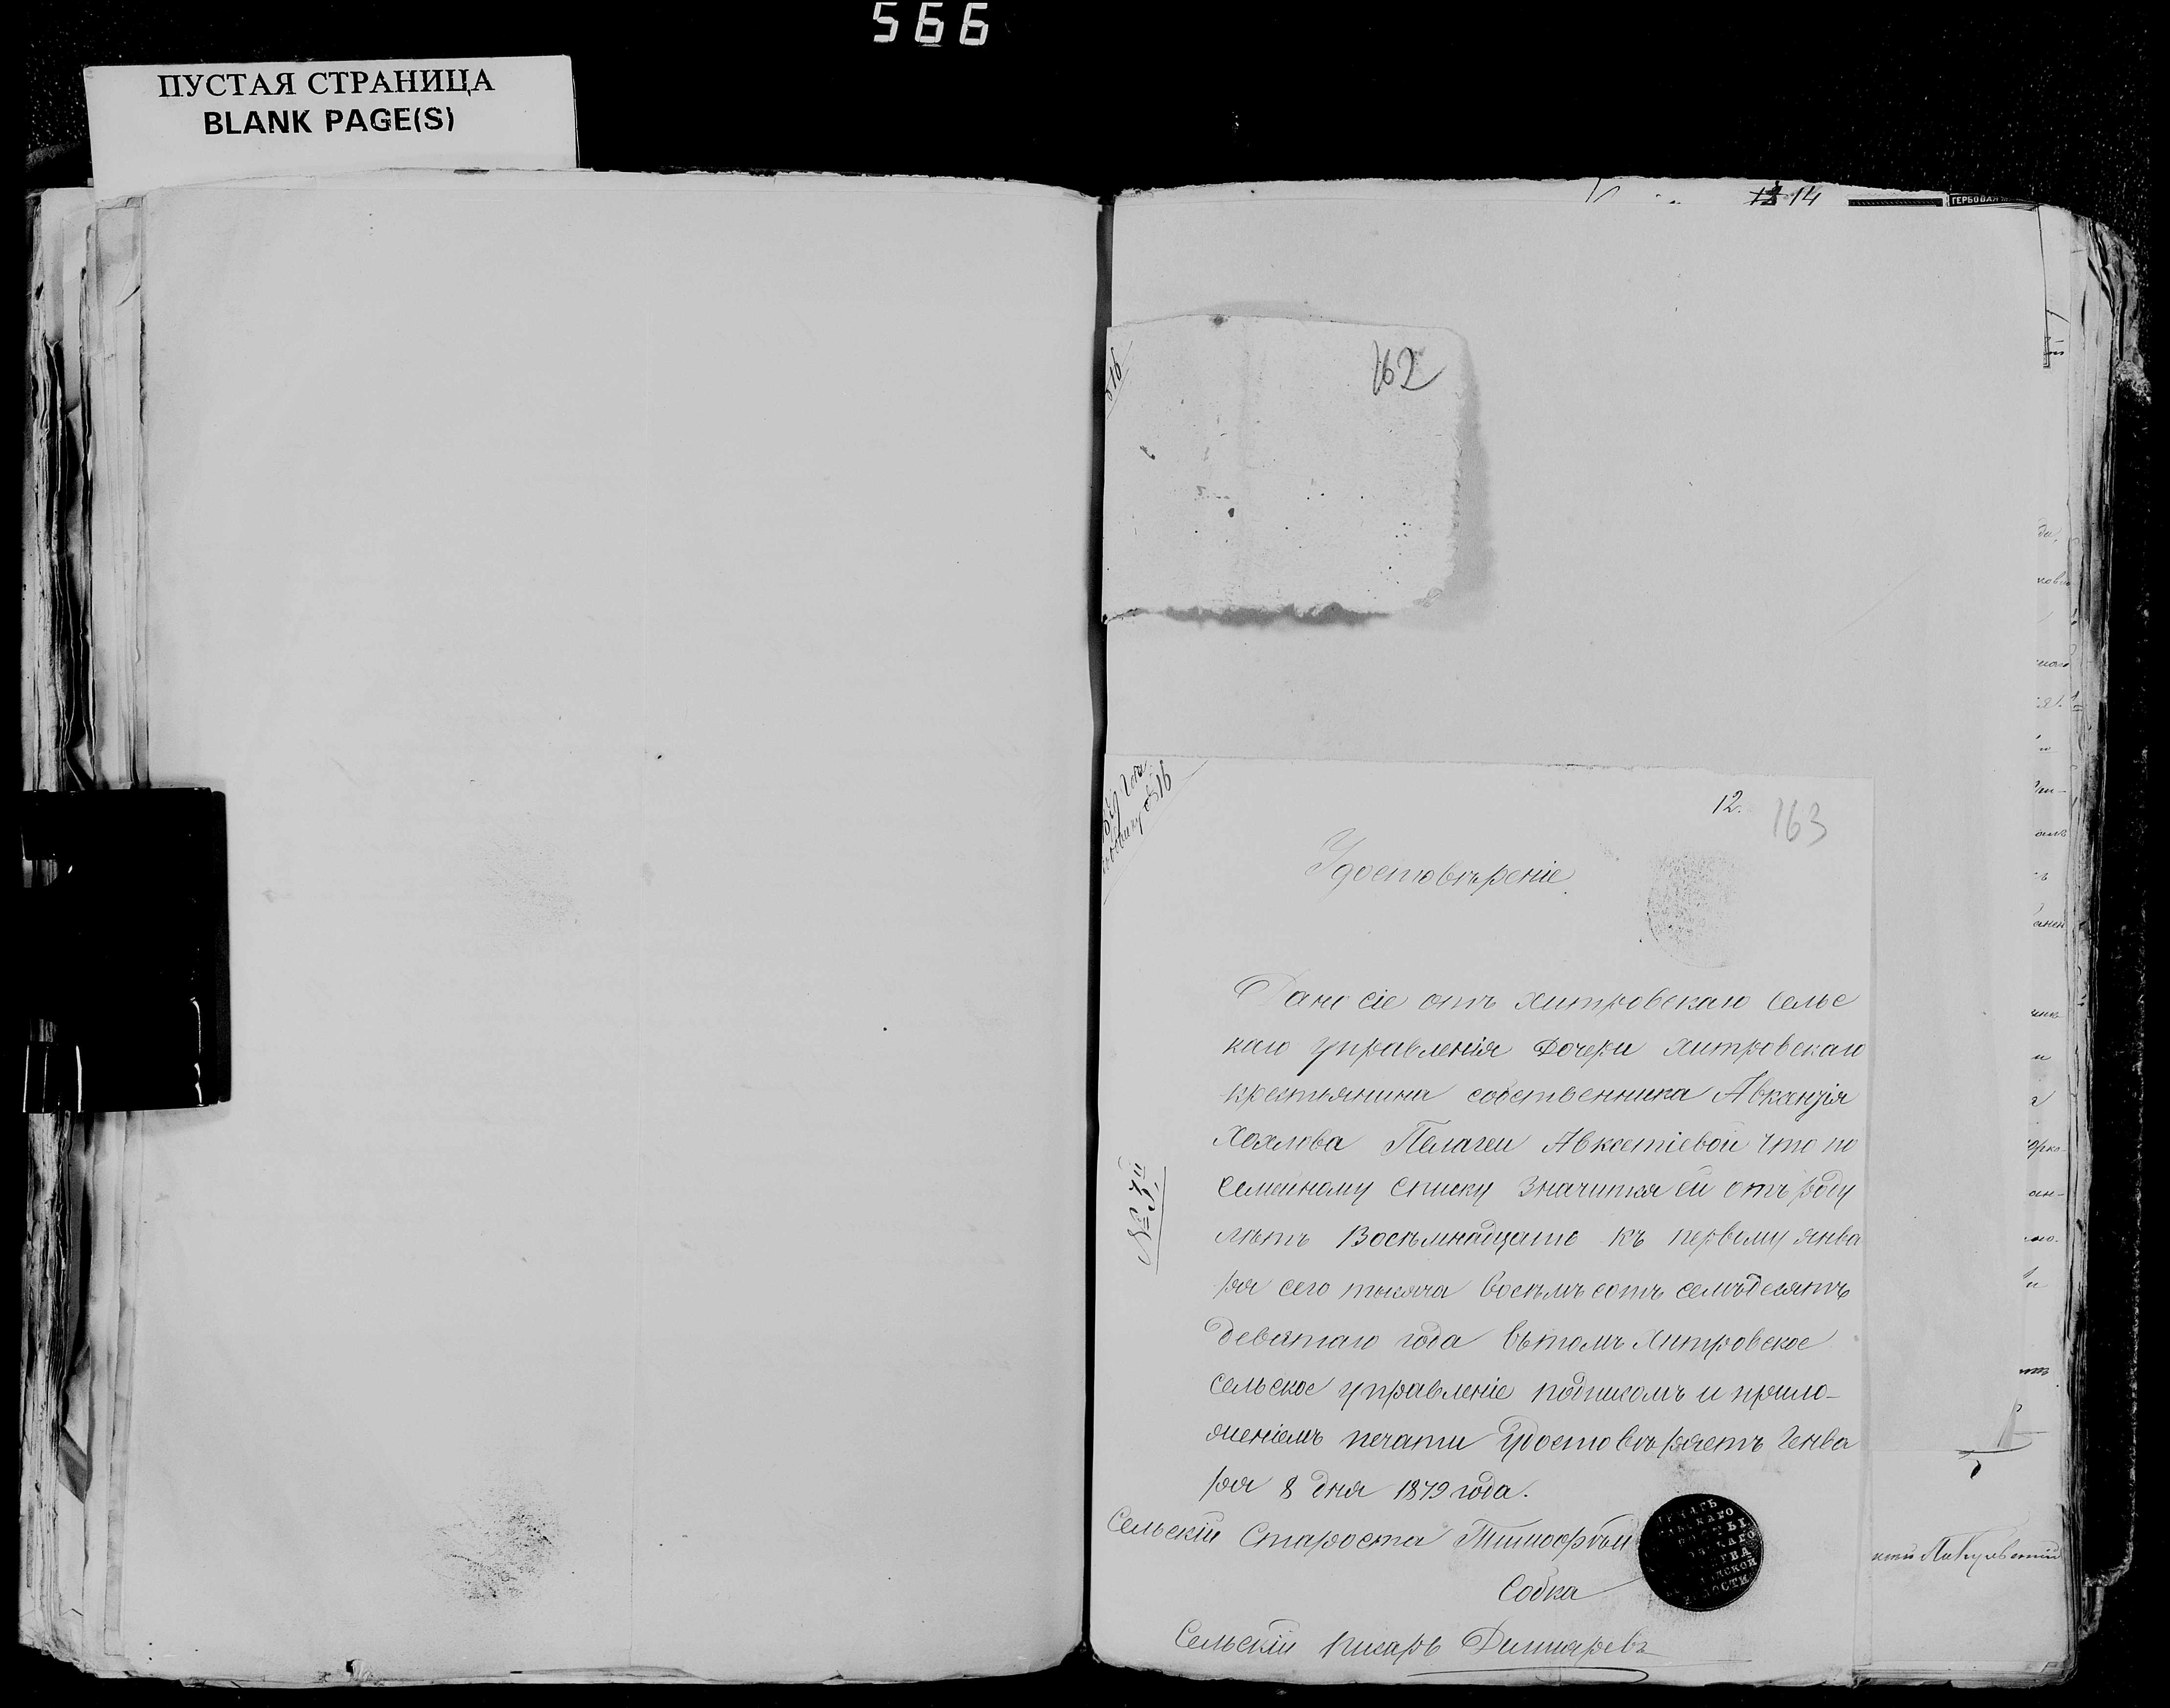 566
ПУСТАЯ СТРАНИЦА
BLANK PAGE(S)
12 14
ГЕРБОВАЯ
162
516
516
12.
163
Удостовѣреніе.
Дано сіе отъ хитровскаго сельс
каго управленія Дочери хитровскаго
крестьянина собственника Авкантія
Хохлова Пелагеи Авксетіевой что по
семейному списку значится ей отъ роду
лѣтъ Восѣмнадцать къ первому янва
ря сего тысяча восѣмъ сотъ семъдесятъ
девятаго года вътомъ Хитровское
сельское управленіе подписомъ и прило-
женіемъ печати Удостовѣряетъ Генва
ря 8 дня 1879 года.
№ 3й
Сельскій Староста Тимофѣй
Собка
Сельскій писарь